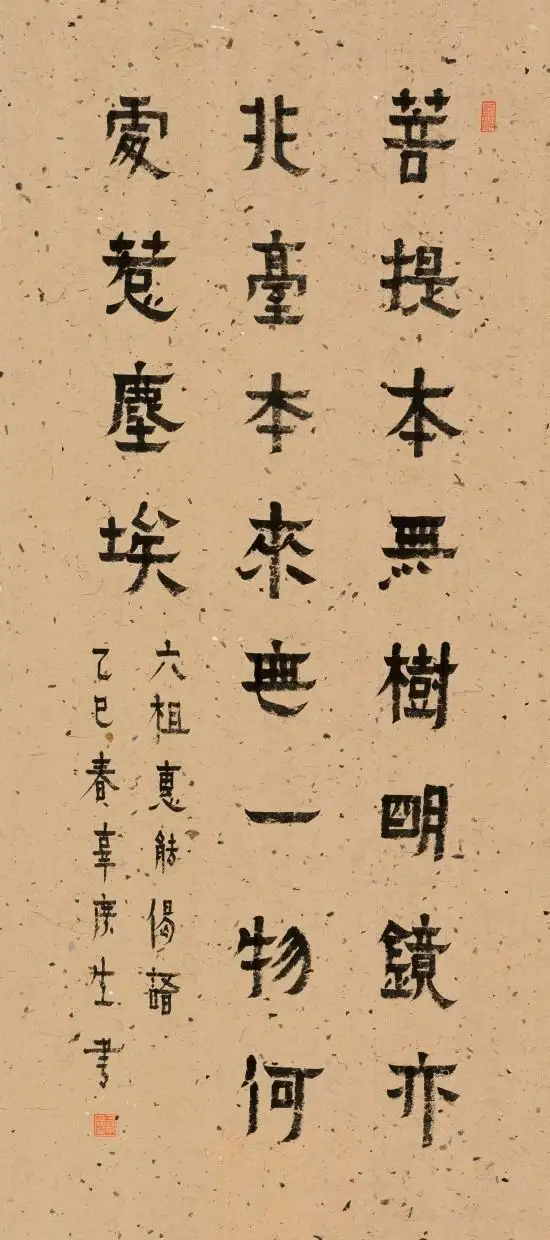 菩提本無樹明鏡亦
非臺本來無一物何
處惹塵埃
六祖惠能偈語
乙巳春生書